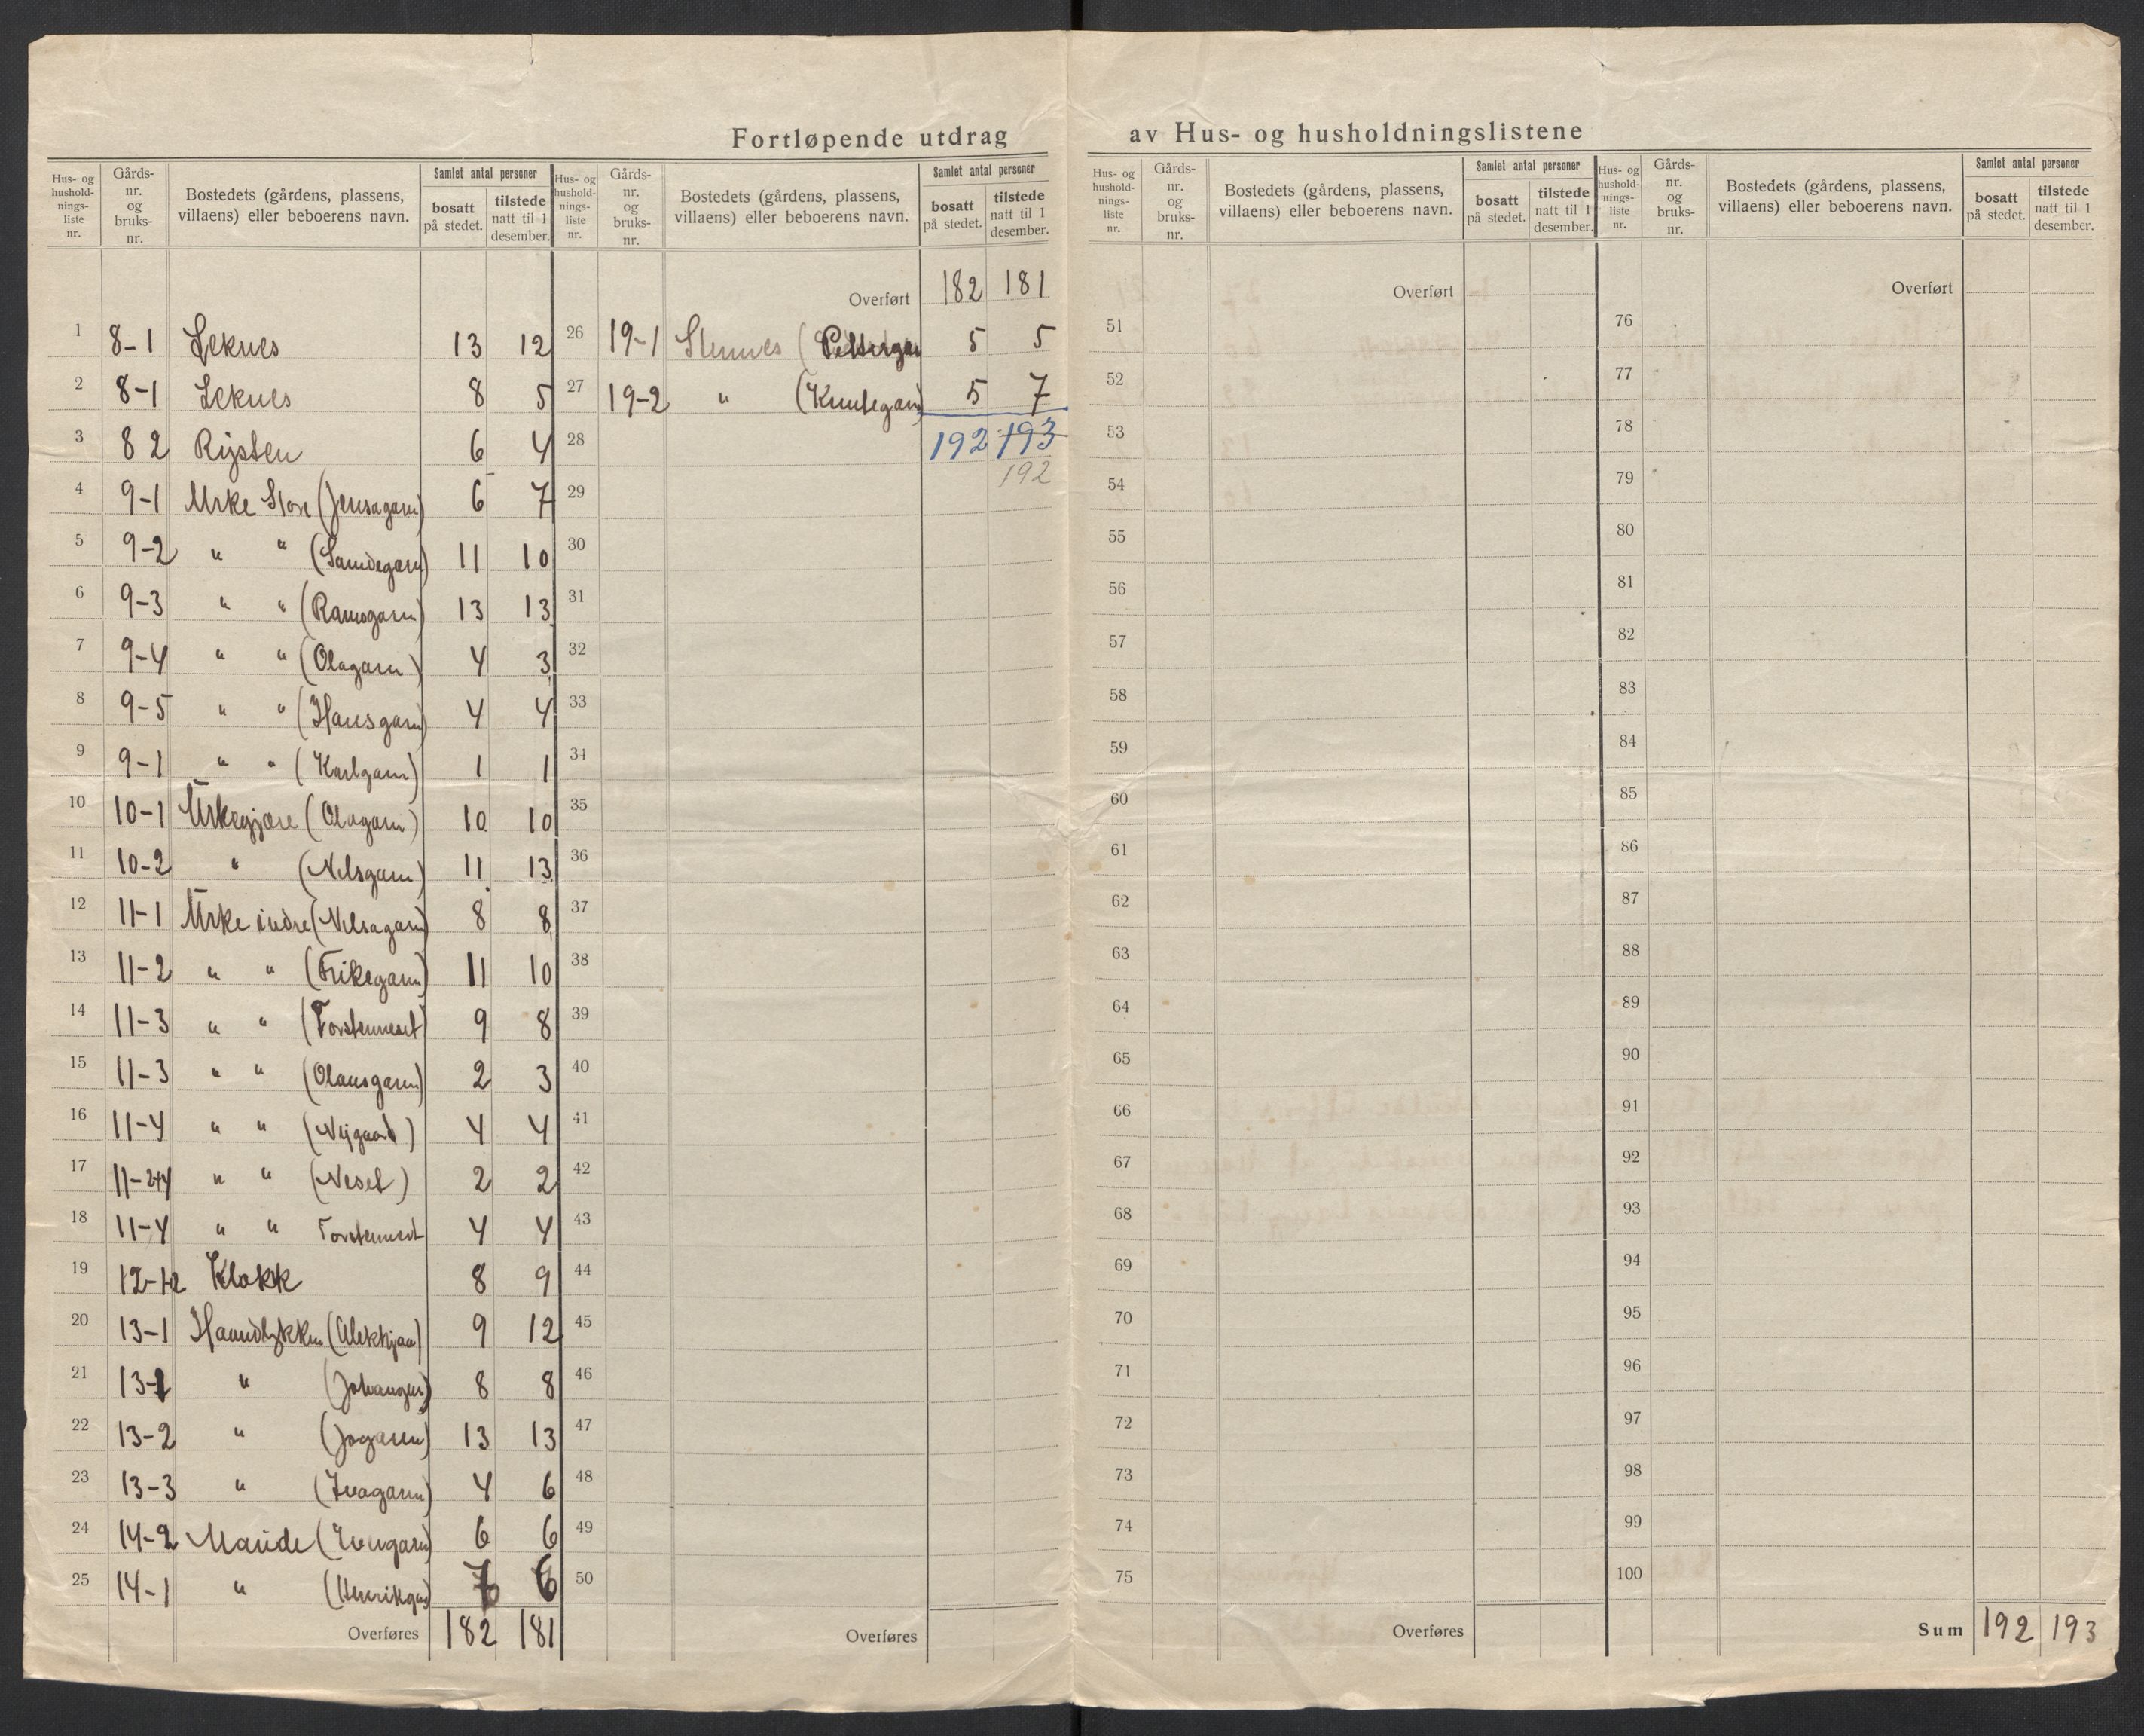 Fortløpende utdrag av Hus- og husholdningslistene
Hus- og hushold-nings-liste nr. Gårds-nr. og bruks-nr. Bostedets (gårdens, plassens, villaens) eller beboerens navn. Samlet antal personer bosatt på stedet. tilstede natt til 1 desember.
1 8-1 Leknes 13 12
2 8-1 Leknes 8 5
3 8 2 Rysten 6 4
4 9-1 Urke Store (Jensagarn) 6 7
5 9-2 " " 11 10
6 9-3 " " (Ramsgarn) 13 13
7 9-4 " " (Olagarn) 4 3
8 9-5 " " (Hansgarn) 4 4
9 9-1 " " (Karlgarn) 1 1
10 10-1 Urkegjære (Olagarn) 10 10
11 10-2 " (Nilsgarn) 11 13
12 11-1 Urke indre (Nilsagarn) 8 8
13 11-2 " " (Frikegarn) 11 10
14 11-3 " " (Torstenneset) 9 8
15 11-3 " " (Olausgarn) 2 3
16 11-4 " " (Nygaard) 4 4
17 11-2+4 " " (Neset) 2 2
18 11-4 " " Torstennest 4 4
19 12-1+2 Klokk 8 9
20 13-1 Haandlykken 9 12
21 13-1 " 8 8
22 13-2 " (Jogarn) 13 13
23 13-3 " (Ivagarn) 4 6
24 14-2 Maude 6 6
25 14-1 " (Henrikgar) 7 6
Overføres 182 181
Hus- og hushold-nings-liste nr. Gårds-nr. og bruks-nr. Bostedets (gårdens, plassens, villaens) eller beboerens navn. Samlet antal personer bosatt på stedet. tilstede natt til 1 desember.
Overført 182 181
26 19-1 Stennes (Pettergar 5 5
27 19-2 " (Knutegarn) 5 7
28 192 193
192
29
30
31
32
33
34
35
36
37
38
39
40
41
42
43
44
45
46
47
48
49
50
Overføres
Hus- og hushold-nings-liste nr. Gårds-nr. og bruks-nr. Bostedets (gårdens, plassens, villaens) eller beboerens navn. Samlet antal personer bosatt på stedet. tilstede natt til 1 desember.
Overført
51
52
53
54
55
56
57
58
59
60
61
62
63
64
65
66
67
68
69
70
71
72
73
74
75
Overføres
Hus- og hushold-nings-liste nr. Gårds-nr. og bruks-nr. Bostedets (gårdens, plassens, villaens) eller beboerens navn. Samlet antal personer bosatt på stedet. tilstede natt til 1 desember.
Overført
76
77
78
79
80
81
82
83
84
85
86
87
88
89
90
91
92
93
94
95
96
97
98
99
100
Sum 192 193